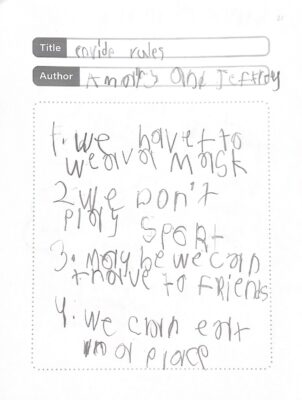 Title envide rules
Author Amaris and Jeffrey
1. we have to
wear a Mask
2. We Don't
Play
SPORT
3. maybe we can
to Friends
4. We can eat
place